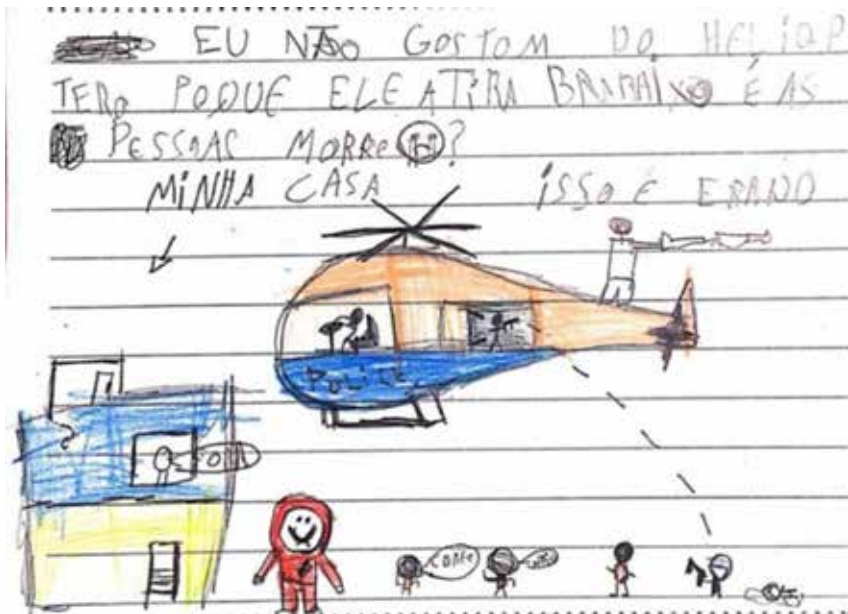 EU NÃO GOSTOM DO HELIOP
TERO POQUE ELE ATIRA BRARAIXO É AS
PESSOAS MORRE ?
MINHA CASA ISSO E ERADO
POLICE
CORRE